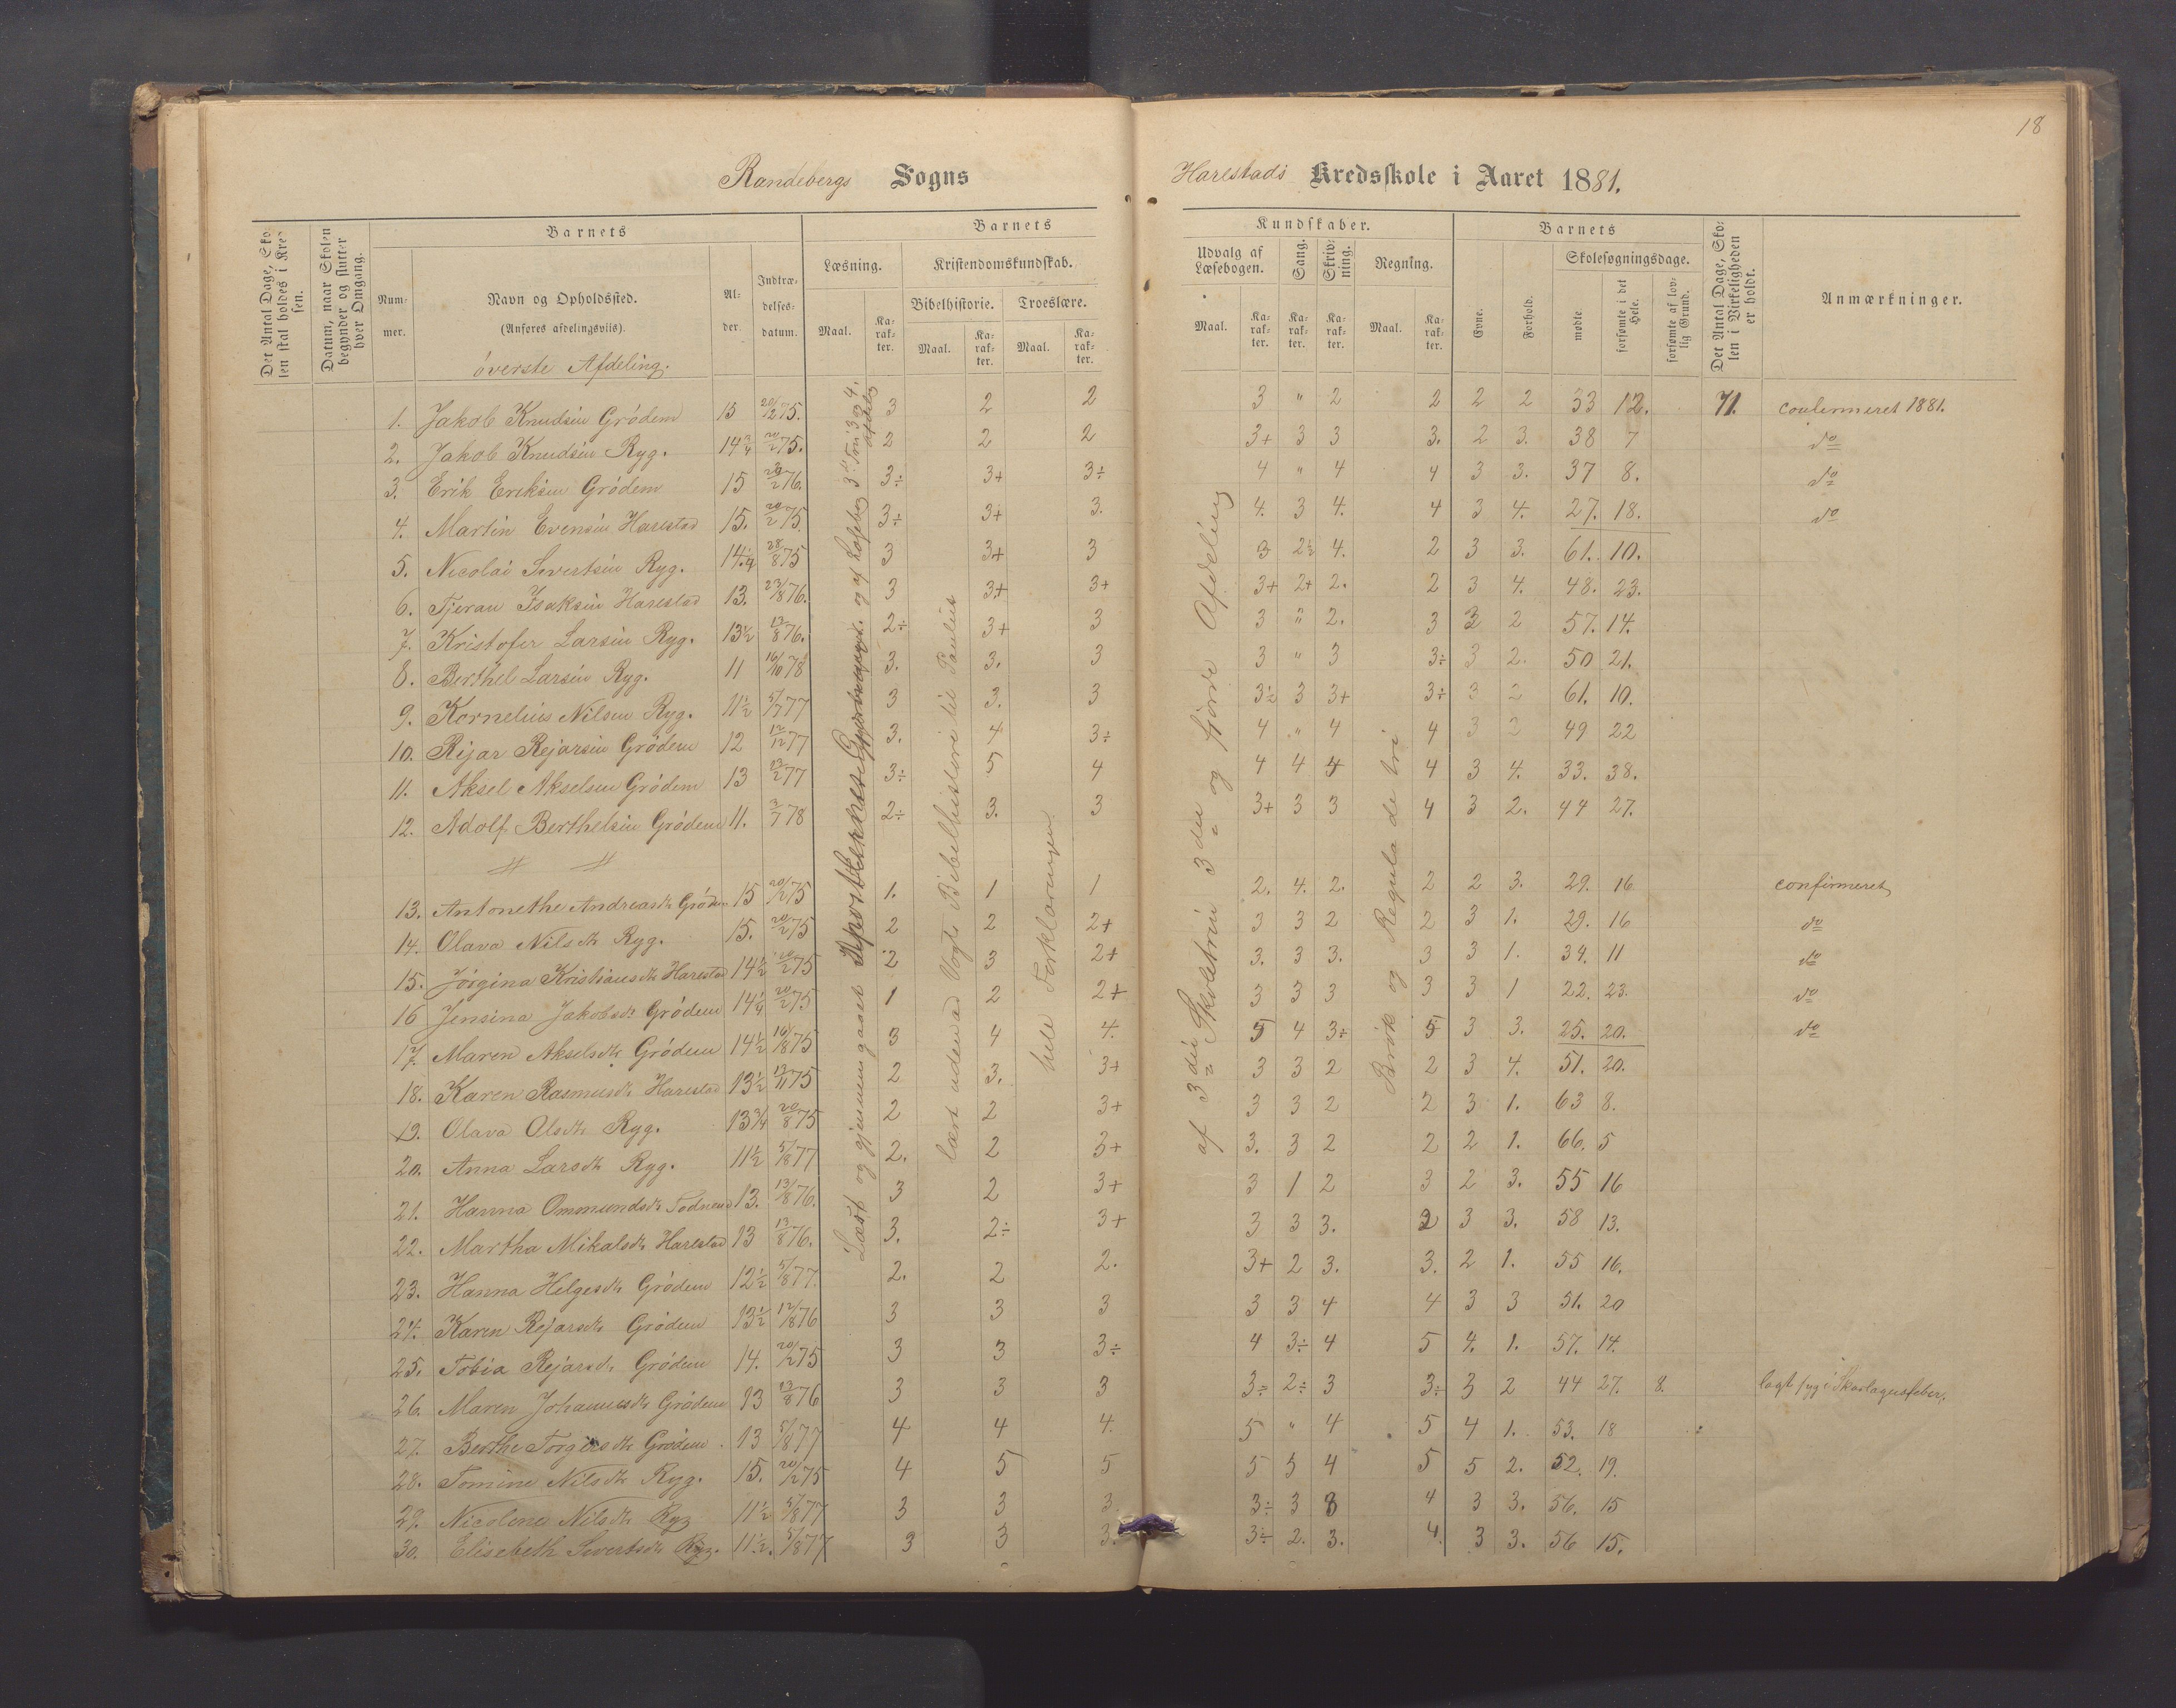 18
Randebergs Sogns Harestads Kredsskole i Aaret 1881.
Det Antal Dage, Skolen skal holdes i Kredsen.
Datum, naar Skolen begynder og slutter hver Omgang.
Barnets
Nummer.
Navn og Opholdssted.
(Anføres afdelingsviis).
Alder.
Indtrædelsesdatum.
Barnets Kundskaber.
Læsning.
Maal. Karakter.
Kristendomskundskab.
Bibelhistorie. Troeslære.
Maal. Karakter. Maal. Karakter.
Udvalg af Læsebogen.
Maal. Karakter.
Sang. Karakter.
Skrivning. Karakter.
Regning.
Maal. Karakter.
Barnets
Evne. Forhold.
Skolesøgningsdage.
mødte forsømte i det Hele. forsømte af lovlig Grund.
Det Antal Dage, Skolen i Virkeligheden er holdt.
Anmærkninger.
øverste Afdeling.
1. Jakob Knudsen Grödem 15 20/12 75. 3 2 2 3 " 2 2 2 2 33 12. 71. confirmeret 1881.
2. Jakob Knudsen Ryg. 14 3/4 20/2 75. 2 2 2 3+ 3 3 3. 2 3. 38 7 do
3. Erik Eriksen Grödem 15 20/2 76. 3÷ 3+ 3÷ 4 " 4 4 3 3. 37 8. do
4. Martin Evensen Harestad 15. 20/2 75 3÷ 3+ 3. 4. 3 4. 4 3 4. 27. 18. do
5. Nicolai Sivertsen Ryg. 14 1/4 28/8 75 3 3+ 3 3 2½ 4. 2 3 3. 61. 10.
6. Tjeran Isaksen Harestad 13. 23/8 76. 3 3+ 3+ 3+ 2+ 2. 2 3 4. 48. 23.
7. Kristofer Larsen Ryg. 13½ 13/8 76. 2÷ 3+ 3 3 " 2. 3 3 2 57. 14.
8. Berthel Larsen Ryg. 11 16/10 78 3. 3. 3 3 " 3 3÷ 3 2. 50 21.
9. Kornelius Nilsen Ryg. 11½ 5/7 77 3 3. 3 3½ 3 3+ 3÷ 3 2 61. 10.
10. Rejar Rejarsen Grödem 12 12/12 77 3. 4 3÷ 4 " 4 4 3 2 49 22
11. Aksel Akselsen Grödem 13 13/2 77 3÷ 5 4 4 4 4 4 3 4. 33. 38.
12. Adolf Berthelsen Grödem 11. 3/7 78 2÷ 3. 3 3+ 3 3 4 3 2. 44 27.
13. Antonethe Andreasdt Grödem 15 20/12 75 1. 1 1 2. 4. 2. 2 2 3. 29. 16 confirmeret
14. Olava Nilsdt Ryg. 15. 20/2 75 2 2 2+ 3 3 2 2 3 1. 29. 16 do
15. Jörgina Kristiansdt Harestad 14½ 20/2 75 2 3 2+ 3. 3 3. 3 3 1. 34. 11 do
16 Jensina Jakobsdt Grödem 14¼ 20/2 75 1 2 2+ 3 3 3 3 3 1 22. 23. do
17. Maren Akselsdt Grödem 14½ 16/8 75 3 4 4. 5 4 3÷ 5 3 3. 25. 20. do
18. Karen Rasmusdt Harestad 13½ 13/11 75 2 3. 3+ 3 3 2 2 3 4. 51. 20.
19. Olava Olsdt Ryg. 13¾ 20/8 75 2 2 3+ 3 3 2 2 3 1. 63 8.
20. Anna Larsdt Ryg. 11½ 5/8 77 2. 2 3+ 3. 3 2 2 2 1. 66. 5
21. Hanna Ommundsdt Todnem 13. 13/8 76. 3 2 3+ 3 1 2 3 2 3. 55 16
22. Martha Mikalsdt Harestad 13 13/8 76. 3. 2÷ 3+ 3 3 3. 2 3 3. 58 13.
23. Hanna Helgesdt Grödem 12½ 5/8 77. 2. 2 2. 3+ 2 3. 3. 2 1. 55 16.
24. Karen Rejarsdt Grödem 13½ 12/8 76 3 3 3 3 3 4 4 3 3 51. 20
25. Tobia Rejarsdt Grödem 14. 20/12 75 3 3 3÷ 4 3÷ 4 5 4. 1. 57. 14.
26. Maren Johannesdt Grödem 13 13/8 76 3 3 3 3÷ 2÷ 3 3÷ 3 2 44 27. 8. lagt syg i Skarlagensfeber.
27. Berthe Torgersdt Grödem 13 5/8 77 4 4 4. 5 " 4 5 4 1. 53. 18
28. Tomine Nilsdt Ryg. 15. 20/12 75 4 5 5 5 5 4 5 5 2. 52. 19.
29. Nicoline Nilsdt Ryg 11½ 5/8 77 3 3 3. 3÷ 3 3 4 3 3. 56. 15
30. Elisebeth Sivertsdt Ryg. 11½. 5/8 77 3 3 3. 3÷ 2. 3. 4. 3 3. 56 15.
Læst og gjennemgaaet og af Læsebog 3die Trin 3 og 4. afdeling
lært udenad Vogts Bibelhistorie til Paulus
hele Forklaringen.
af 3die Skoletrin 3die og fjerde Afdeling
Brök og Regula de tri